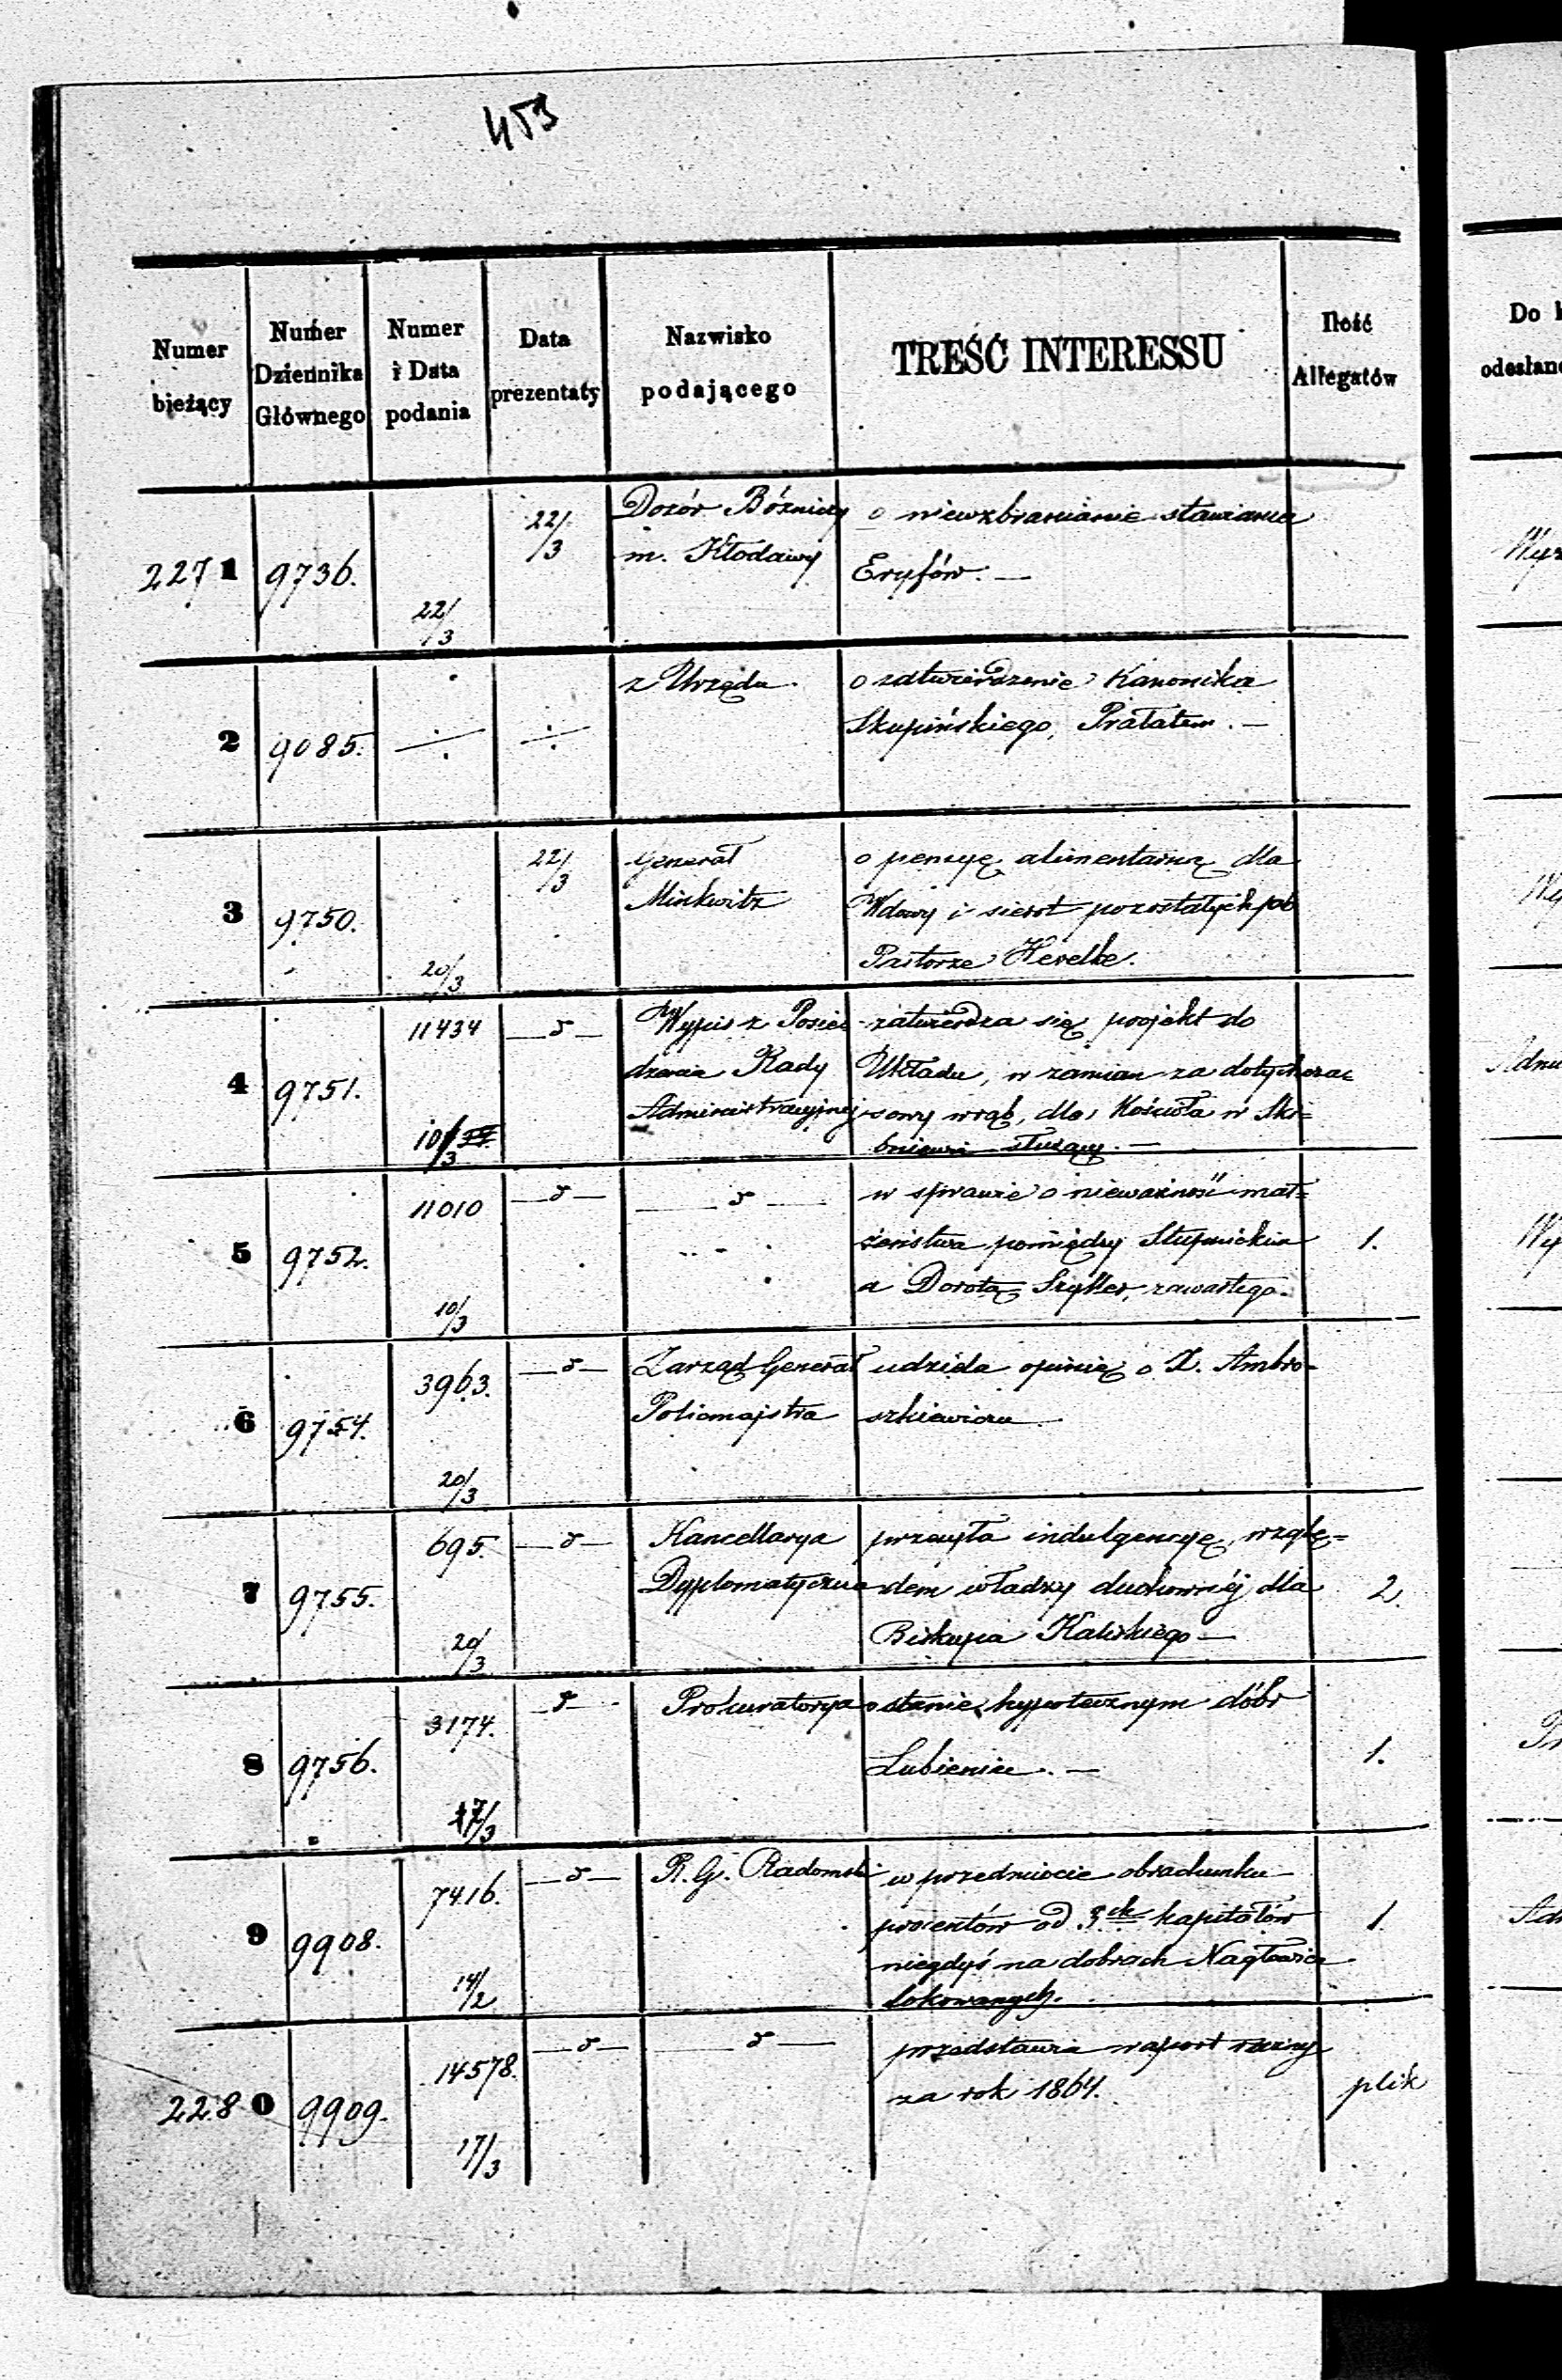 453
Numer bieżący
Numer Dziennika Głównego
Numer i Data podania
Data prezentaty
Nazwisko podającego
TREŚĆ INTERESSU
Ilość Allegatów
Do
odesłano
2271 9736. 22/3 22/3 Dozór Bóżniczy o niewzbranianie stawiania
m. Kłodawy Eryfów. —
2 9085. ÷ ÷ z Urzędu o zatwierdzenie Kanonika
Skupińskiego, Prałatem. —
3 9750. 20/3 22/3 Generał o pensyę alimentarną dla
Minkwitz Wdowy i sierot pozostałych po
Pastorze Hevelke.
4 9751. 11434 10/3 — d — Wypis z Posie- zatwierdza się projekt do
dzenia Rady Układu, w zamian za dotychczas-
Administracyjnej sowy wrąb, dla Kościoła w Ski=
bniewie służący. —
5 9752. 11010 10/3 — d — — d — w sprawie o nieważność mał=
żeństwa pomiędzy Słupnickim 1.
a Dorotą Szyller, zawartego.
6 9754. 3963. 20/3 — d — Zarząd Generał udziela opinię o X. Ambro-
Policmajstra szkiewiczu
7 9755. 695. 20/3 — d — Kancellarya przesyła indulgencyę, wzglę=
Dyplomatyczna dem władzy duchownéj dla 2.
Biskupa Kaliskiego —
8 9756. 3174. 17/3 — d — Prokuratorya o stanie hypotecznym dóbr
Lubienice. — 1.
9 9908. 7416. 14/2 — d — R. G. Radomski w przedmiocie obrachunku
procentów od 3ch kapitałów 1.
niegdyś na dobrach Nagłowice
lokowanych.
2280 9909. 14578. 17/3 — d — — d — przedstawia raport roczny
za rok 1864. plik